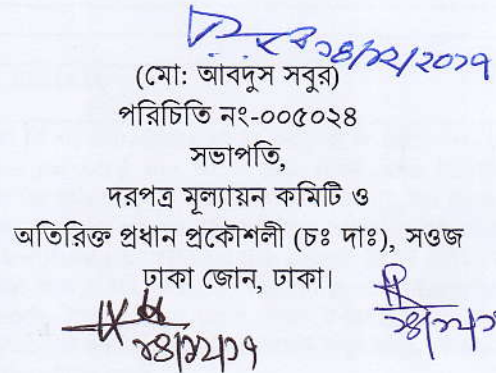 ১৪/১২/২০১৭
(মো: আবদুস সবুর)
পরিচিতি নং-০০৫০২৪
সভাপতি,
দরপত্র মূল্যায়ন কমিটি ও
অতিরিক্ত প্রধান প্রকৌশলী (চঃ দাঃ), সওজ
ঢাকা জোন, ঢাকা।
১৪/১২/১৭
১৪/১২/১